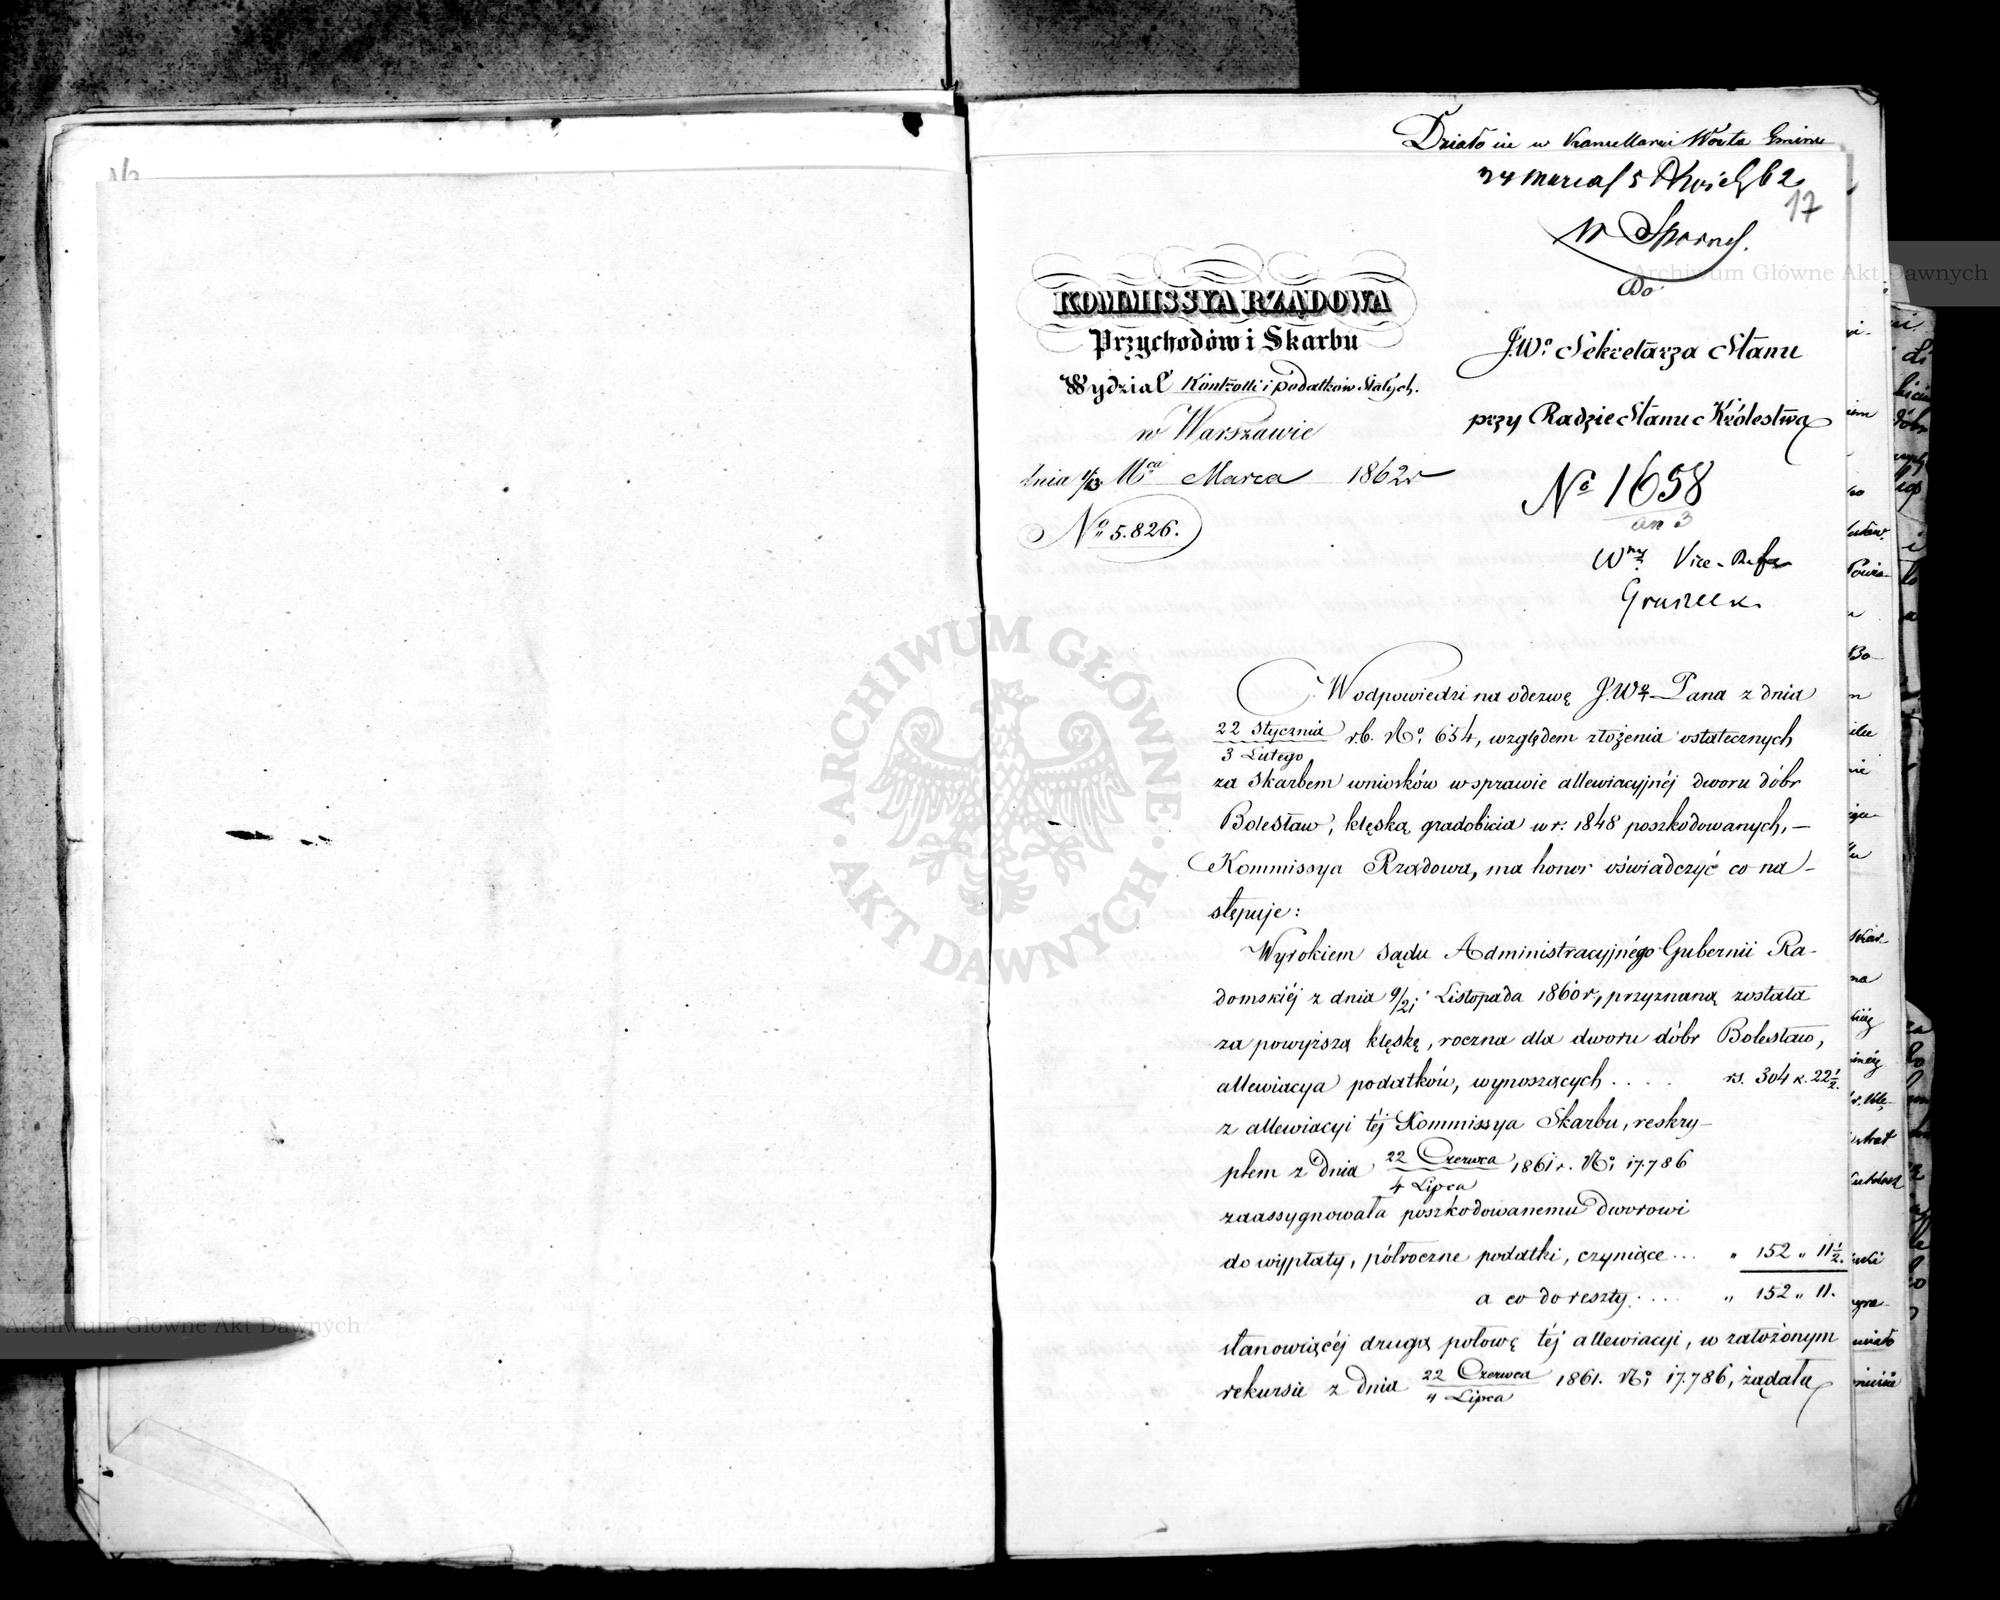 Działo się w Kancellarii Wójta Gminy
24 Marca/5 Kwiet. 62
17
Do
JWo Sekretarza Stanu
przy Radzie Stanu Królestwa
No 1658
an 3
Wny Vice-Refer
KOMMISSYA RZĄDOWA
Przychodów i Skarbu
Wydział Kontrolli i podatków Stałych.
w Warszawie
dnia 1/13 Mca Marca 1862 r
No 5.826.
W odpowiedzi na odezwę JWo Pana z dnia
22 Stycznia / 3 Lutego r.b. No 654, względem złożenia ostatecznych
za Skarbem wniosków w sprawie allewiacyjnéj dworu dóbr
Bolesław, klęską gradobicia w r. 1848 poszkodowanych,—
Kommissya Rządowa, ma honor oświadczyć co na-
stępuje:
Wyrokiem Sądu Administracyjnégo Gubernii Ra-
domskiéj z dnia 9/21 Listopada 1860 r, przyznaną została
za powyższą klęskę, roczna dla dworu dóbr Bolesław,
allewiacya podatków, wynoszących .... rs. 304 k. 22½.
z allewiacyi téj Kommissya Skarbu, reskry-
ptem z dnia 22 Czerwca / 4 Lipca 1861 r. No 17.786
zaassygnowała poszkodowanemu dworowi
do wypłaty, półroczne podatki, czyniące ... „ 152 „ 11½.
a co do reszty .... „ 152 „ 11.
stanowiącéj drugą połowę téj allewiacyi, w założonym
rekursie z dnia 22 Czerwca / 4 Lipca 1861. No 17.786, żądała
Archiwum Główne Akt Dawnych
ARCHIWUM GŁÓWNE AKT DAWNYCH
Archiwum Główne Akt Dawnych